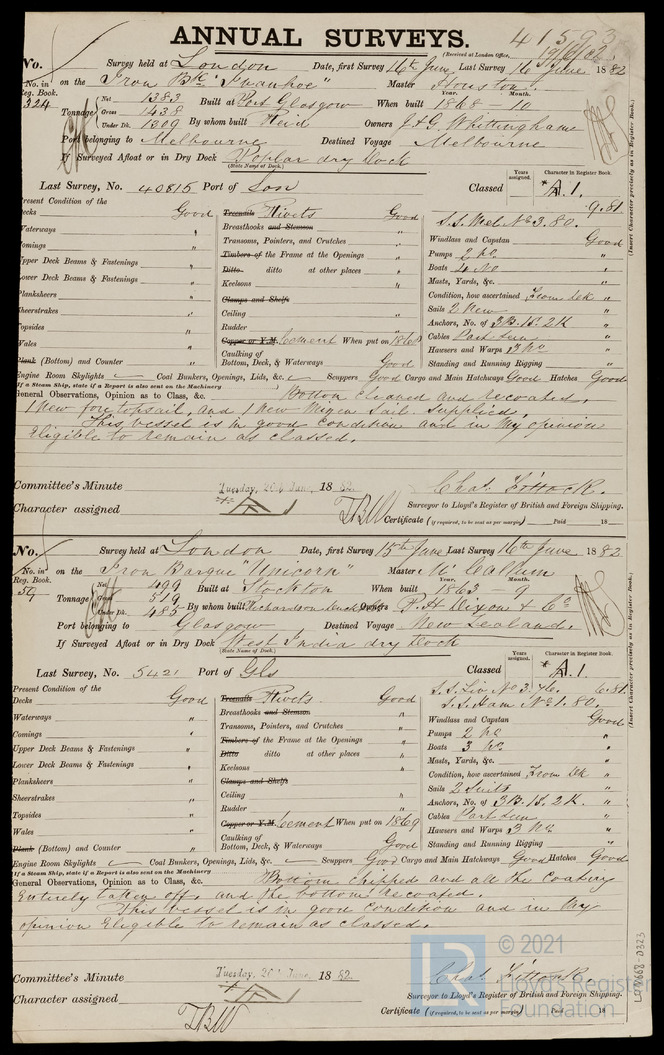 ANNUAL SURVEYS.
41593
(Received at London Office, 19/6/82.
No. Survey held at London Date, first Survey 16th June Last Survey 16 June 1882
No. in Reg. Book. on the Iron Bk "Ivanhoe" Master Houston.
324 Tonnage Net 1383 Built at Port Glasgow When built Year. 1868 Month. 10
Gross 1438
Under Dk. 1309 By whom built Reid Owners J & G. Whittinghame
Port belonging to Melbourne Destined Voyage Melbourne
If Surveyed Afloat or in Dry Dock Poplar dry dock
(State Name of Dock.)
Last Survey, No. 40815 Port of Lon Classed Years assigned. Character in Register Book. A.1.
9.81
(Insert Character precisely as in Register Book.)
Present Condition of the
Decks Good
Waterways "
Comings "
Upper Deck Beams & Fastenings "
Lower Deck Beams & Fastenings "
Planksheers "
Sheerstrakes "
Topsides "
Wales "
Plank (Bottom) and Counter "
Treenails Rivets Good
Breasthooks and Stemson "
Transoms, Pointers, and Crutches "
Timbers of the Frame at the Openings "
Ditto ditto at other places "
Keelsons "
Clamps and Shelfs
Ceiling "
Rudder "
Copper or Y.M. Cement When put on 1868
Caulking of Bottom, Deck, & Waterways Good
S.S. Mel. No 3. 80.
Windlass and Capstan Good
Pumps 2 No "
Boats 4 No "
Masts, Yards, &c. "
Condition, how ascertained From dk "
Sails 2 New "
Anchors, No. of 3B. 1S. 2K "
Cables Part seen "
Hawsers and Warps 3 No "
Standing and Running Rigging "
Engine Room Skylights Coal Bunkers, Openings, Lids, &c. Scuppers Good Cargo and Main Hatchways Good Hatches Good
If a Steam Ship, state if a Report is also sent on the Machinery
General Observations, Opinion as to Class, &c. Bottom cleaned and recoated,
1 New fore topsail, and 1 New Mizen Sail supplied.
This vessel is in good condition and in my opinion
Eligible to remain as classed.
Committee's Minute Tuesday, 20th June, 1882.
Character assigned A 1
Chas. Fittock.
Surveyor to Lloyd's Register of British and Foreign Shipping.
Certificate (if required, to be sent as per margin) Paid 18
No. Survey held at London Date, first Survey 15th June Last Survey 16th June 1882
No. in Reg. Book. on the Iron Barque "Unicorn" Master McCallum
59 Tonnage Net 499 Built at Stockton When built Year. 1863 Month. 9
Gross 519
Under Dk. 485 By whom built Richardson Duck & Co Owners P. H Dixon & Co
Port belonging to Glasgow Destined Voyage New Zealand.
If Surveyed Afloat or in Dry Dock West India dry dock
(State Name of Dock.)
Last Survey, No. 5421 Port of Gls Classed Years assigned. Character in Register Book. A.1.
6.81
(Insert Character precisely as in Register Book.)
Present Condition of the
Decks Good
Waterways "
Comings "
Upper Deck Beams & Fastenings "
Lower Deck Beams & Fastenings "
Planksheers "
Sheerstrakes "
Topsides "
Wales "
Plank (Bottom) and Counter "
Treenails Rivets Good
Breasthooks and Stemson "
Transoms, Pointers, and Crutches "
Timbers of the Frame at the Openings "
Ditto ditto at other places "
Keelsons "
Clamps and Shelfs
Ceiling "
Rudder "
Copper or Y.M. Cement When put on 1869
Caulking of Bottom, Deck, & Waterways Good
S.S. Liv. No 3. 76.
S.S. Ham No 1. 80.
Windlass and Capstan Good
Pumps 2 No "
Boats 3 No "
Masts, Yards, &c. "
Condition, how ascertained From dk "
Sails 2 Suits "
Anchors, No. of 3B. 1S. 2K. "
Cables Part seen "
Hawsers and Warps 3 No "
Standing and Running Rigging "
Engine Room Skylights Coal Bunkers, Openings, Lids, &c. Scuppers Good Cargo and Main Hatchways Good Hatches Good
If a Steam Ship, state if a Report is also sent on the Machinery
General Observations, Opinion as to Class, &c. Bottom chipped and all the coating
Entirely taken off, and the bottom recoated.
This vessel is in good condition and in my
opinion Eligible to remain as classed.
Committee's Minute Tuesday, 20th June, 1882.
Character assigned A 1
Chas. Fittock.
Surveyor to Lloyd's Register of British and Foreign Shipping.
Certificate (if required, to be sent as per margin) Paid 18
© 2021
Lloyd's Register
Foundation